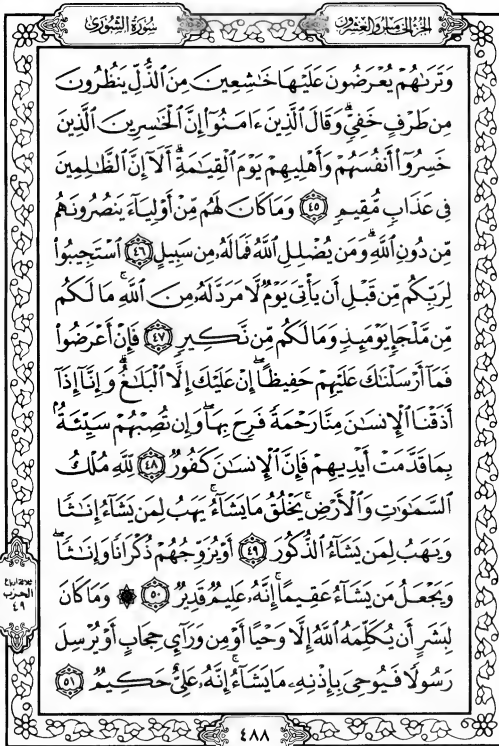 الجزء الخامس والعشرون
سورة الشورى
وَتَرَىٰهُمْ يُعْرَضُونَ عَلَيْهَا خَٰشِعِينَ مِنَ ٱلذُّلِّ يَنظُرُونَ
مِن طَرْفٍ خَفِىٍّۗ وَقَالَ ٱلَّذِينَ ءَامَنُوٓا۟ إِنَّ ٱلْخَٰسِرِينَ ٱلَّذِينَ
خَسِرُوٓا۟ أَنفُسَهُمْ وَأَهْلِيهِمْ يَوْمَ ٱلْقِيَٰمَةِۗ أَلَآ إِنَّ ٱلظَّٰلِمِينَ
فِى عَذَابٍ مُّقِيمٍ ٤٥ وَمَا كَانَ لَهُم مِّنْ أَوْلِيَآءَ يَنصُرُونَهُم
مِّن دُونِ ٱللَّهِۗ وَمَن يُضْلِلِ ٱللَّهُ فَمَا لَهُۥ مِن سَبِيلٍ ٤٦ ٱسْتَجِيبُوا۟
لِرَبِّكُم مِّن قَبْلِ أَن يَأْتِىَ يَوْمٌ لَّا مَرَدَّ لَهُۥ مِنَ ٱللَّهِۚ مَا لَكُم
مِّن مَّلْجَإٍ يَوْمَئِذٍ وَمَا لَكُم مِّن نَّكِيرٍ ٤٧ فَإِنْ أَعْرَضُوا۟
فَمَآ أَرْسَلْنَٰكَ عَلَيْهِمْ حَفِيظًاۖ إِنْ عَلَيْكَ إِلَّا ٱلْبَلَٰغُۗ وَإِنَّآ إِذَآ
أَذَقْنَا ٱلْإِنسَٰنَ مِنَّا رَحْمَةً فَرِحَ بِهَاۖ وَإِن تُصِبْهُمْ سَيِّئَةٌۢ
بِمَا قَدَّمَتْ أَيْدِيهِمْ فَإِنَّ ٱلْإِنسَٰنَ كَفُورٌ ٤٨ لِّلَّهِ مُلْكُ
ٱلسَّمَٰوَٰتِ وَٱلْأَرْضِۚ يَخْلُقُ مَا يَشَآءُۚ يَهَبُ لِمَن يَشَآءُ إِنَٰثًا
وَيَهَبُ لِمَن يَشَآءُ ٱلذُّكُورَ ٤٩ أَوْ يُزَوِّجُهُمْ ذُكْرَانًا وَإِنَٰثًاۖ
وَيَجْعَلُ مَن يَشَآءُ عَقِيمًاۚ إِنَّهُۥ عَلِيمٌ قَدِيرٌ ٥٠ ۞ وَمَا كَانَ
لِبَشَرٍ أَن يُكَلِّمَهُ ٱللَّهُ إِلَّا وَحْيًا أَوْ مِن وَرَآئِ حِجَابٍ أَوْ يُرْسِلَ
رَسُولًا فَيُوحِىَ بِإِذْنِهِۦ مَا يَشَآءُۚ إِنَّهُۥ عَلِىٌّ حَكِيمٌ ٥١
ثلاثة أرباع
الحزب
٤٩
٤٨٨